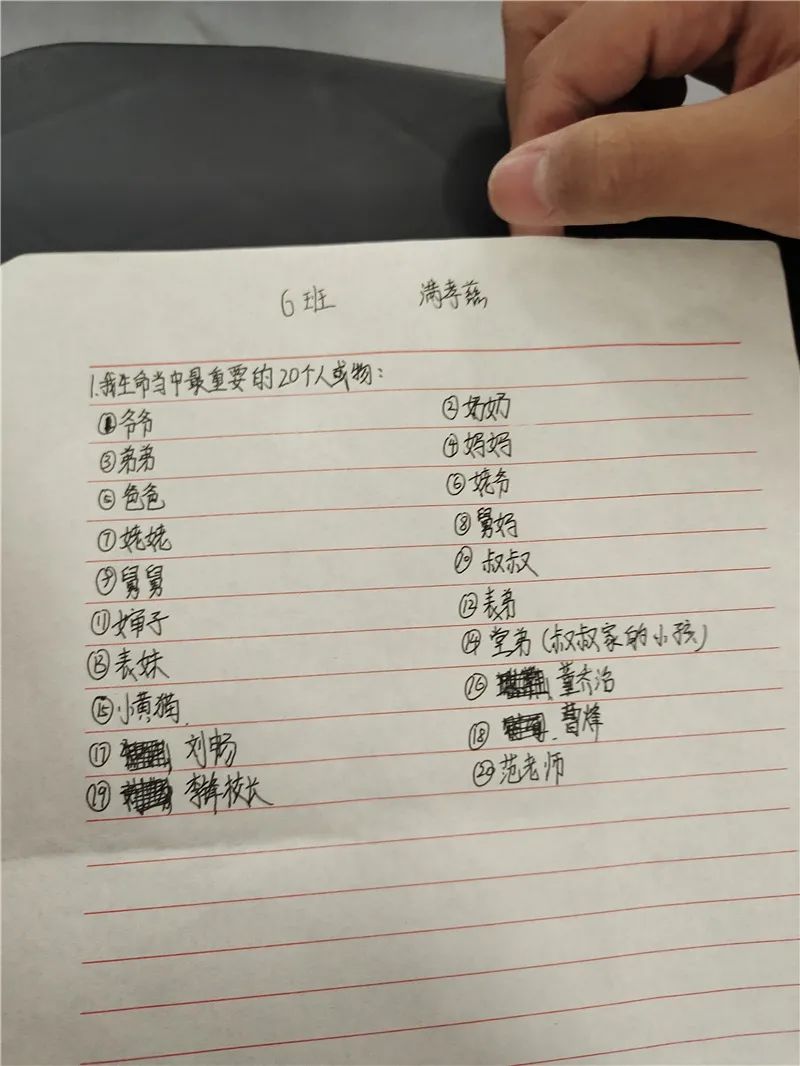 6班 满孝慈
1.我生命当中最重要的20个人或物：
①爷爷 ②奶奶
③弟弟 ④妈妈
⑤爸爸 ⑥姥爷
⑦姥姥 ⑧舅妈
⑨舅舅 ⑩叔叔
⑪婶子 ⑫表弟
⑬表妹 ⑭堂弟（叔叔家的小孩）
⑮小黄猫. ⑯ 董乔治
⑰ 刘畅 ⑱ 曹烽
⑲ 李锋校长 ⑳范老师